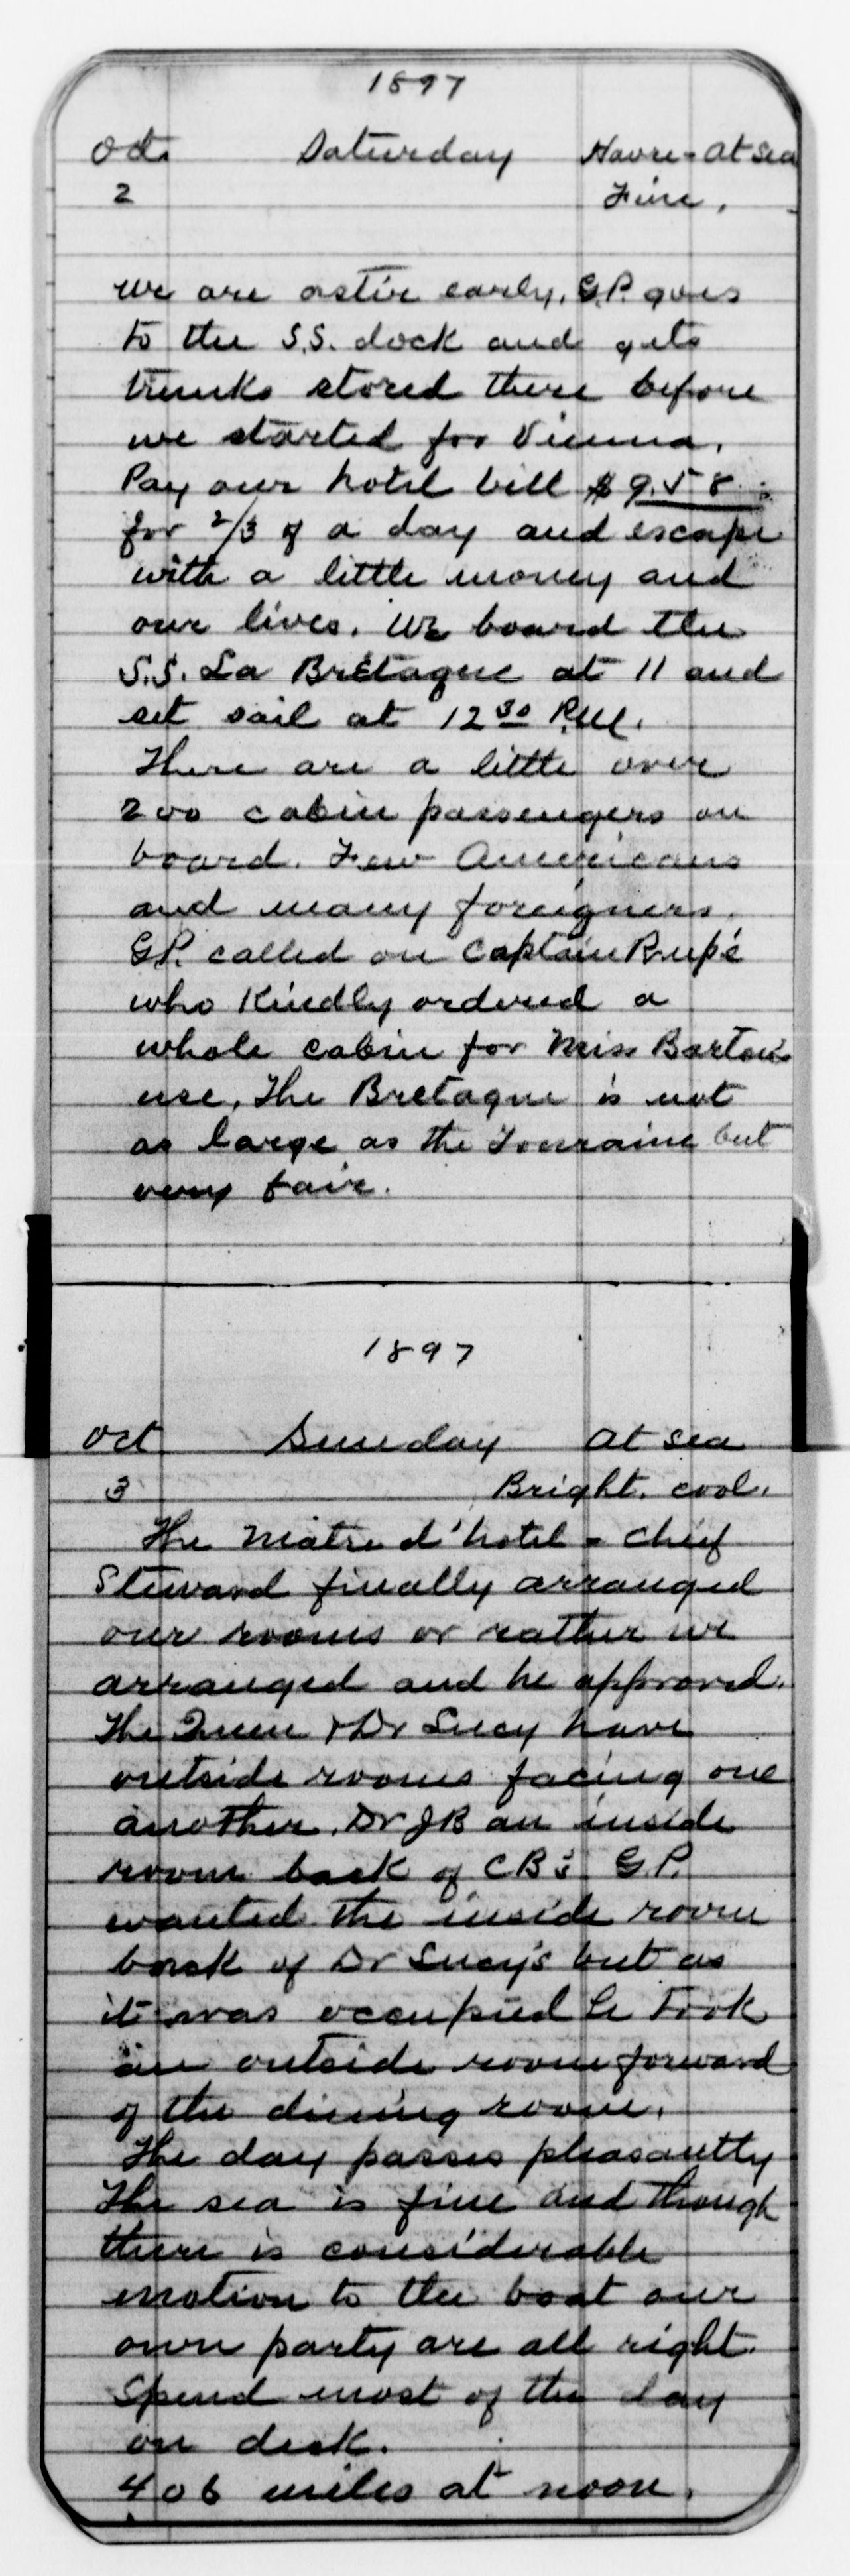 1897
Oct. Saturday Havre - At Sea
2 Fine.
We are astir early. G.P. goes
to the S.S. dock and gets
trunks stored there before
we started for Vienna.
Pay our hotel bill $9.58
for 2/3 of a day and escape
with a little money and
our lives. We board the
S.S. La Bretagne at 11 and
set sail at 12 30 P.M.
There are a little over
200 cabin passengers on
board. Few Americans
and many foreigners.
G.P. called on Captain Rupé
who kindly ordered a
whole cabin for Miss Barton's
use. The Bretagne is not
as large as the Touraine but
very fair.
1897
Oct Sunday At sea
3 Bright. cool.
The Matre d'hotel - Chief
Steward finally arranged
our rooms or rather we
arranged and he approved.
The Queen & Dr Lucy have
outside rooms facing one
another. Dr JB an inside
room back of CB's G.P.
wanted the inside room
back of Dr Lucy's but as
it was occupied he took
an outside room forward
of the dining room.
The day passes pleasantly
The sea is fine and though
there is considerable
motion to the boat our
own party are all right.
Spend most of the day
on deck.
406 miles at noon.